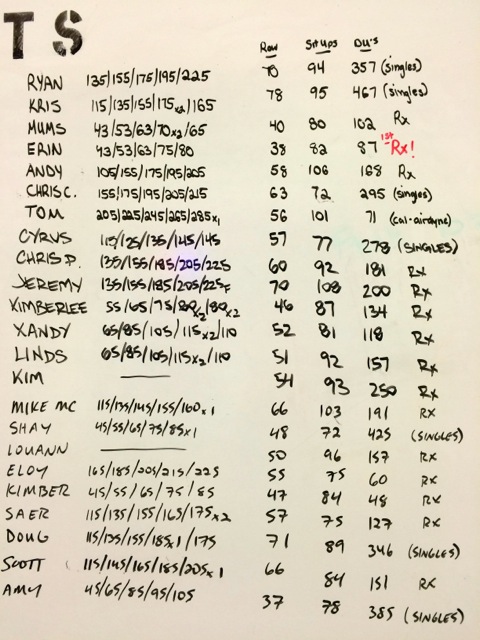 TS
Row Sit Ups DU's
RYAN 135/155/175/195/225 70 94 357 (singles)
KRIS 115/135/155/175x2/165 78 95 467 (singles)
MUMS 43/53/63/70x2/65 40 80 102 Rx
ERIN 43/53/63/75/80 38 82 87 1st Rx!
ANDY 105/155/175/195/205 58 106 168 Rx
CHRIS C. 155/175/195/205/215 63 72 295 (singles)
TOM 205/225/245/265/285x1 56 101 71 (cal-airdyne)
CYRUS 115/125/135/145/145 57 77 278 (SINGLES)
CHRIS P. 135/155/185/205/225 60 92 181 Rx
JEREMY 135/155/185/205/225F 70 108 200 Rx
KIMBERLEE 55/65/75/80x2/80x2 46 87 134 Rx
XANDY 65/85/105/115x2/110 52 81 118 Rx
LINDS 65/85/105/115x2/110 51 92 157 Rx
KIM — 54 93 250 Rx
MIKE MC 115/135/145/155/160x1 66 103 191 RX
SHAY 45/55/65/75/85x1 48 72 425 (SINGLES)
LOUANN — 50 96 157 RX
ELOY 165/185/205/215/225 55 75 60 RX
KIMBER 45/55/65/75/85 47 84 48 RX
SAER 115/135/155/165/175x2 57 75 127 RX
DOUG 115/135/155/185x1/175 71 89 346 (SINGLES)
SCOTT 115/145/165/185/205x1 66 84 151 RX
AMY 45/65/85/95/105 37 78 385 (SINGLES)